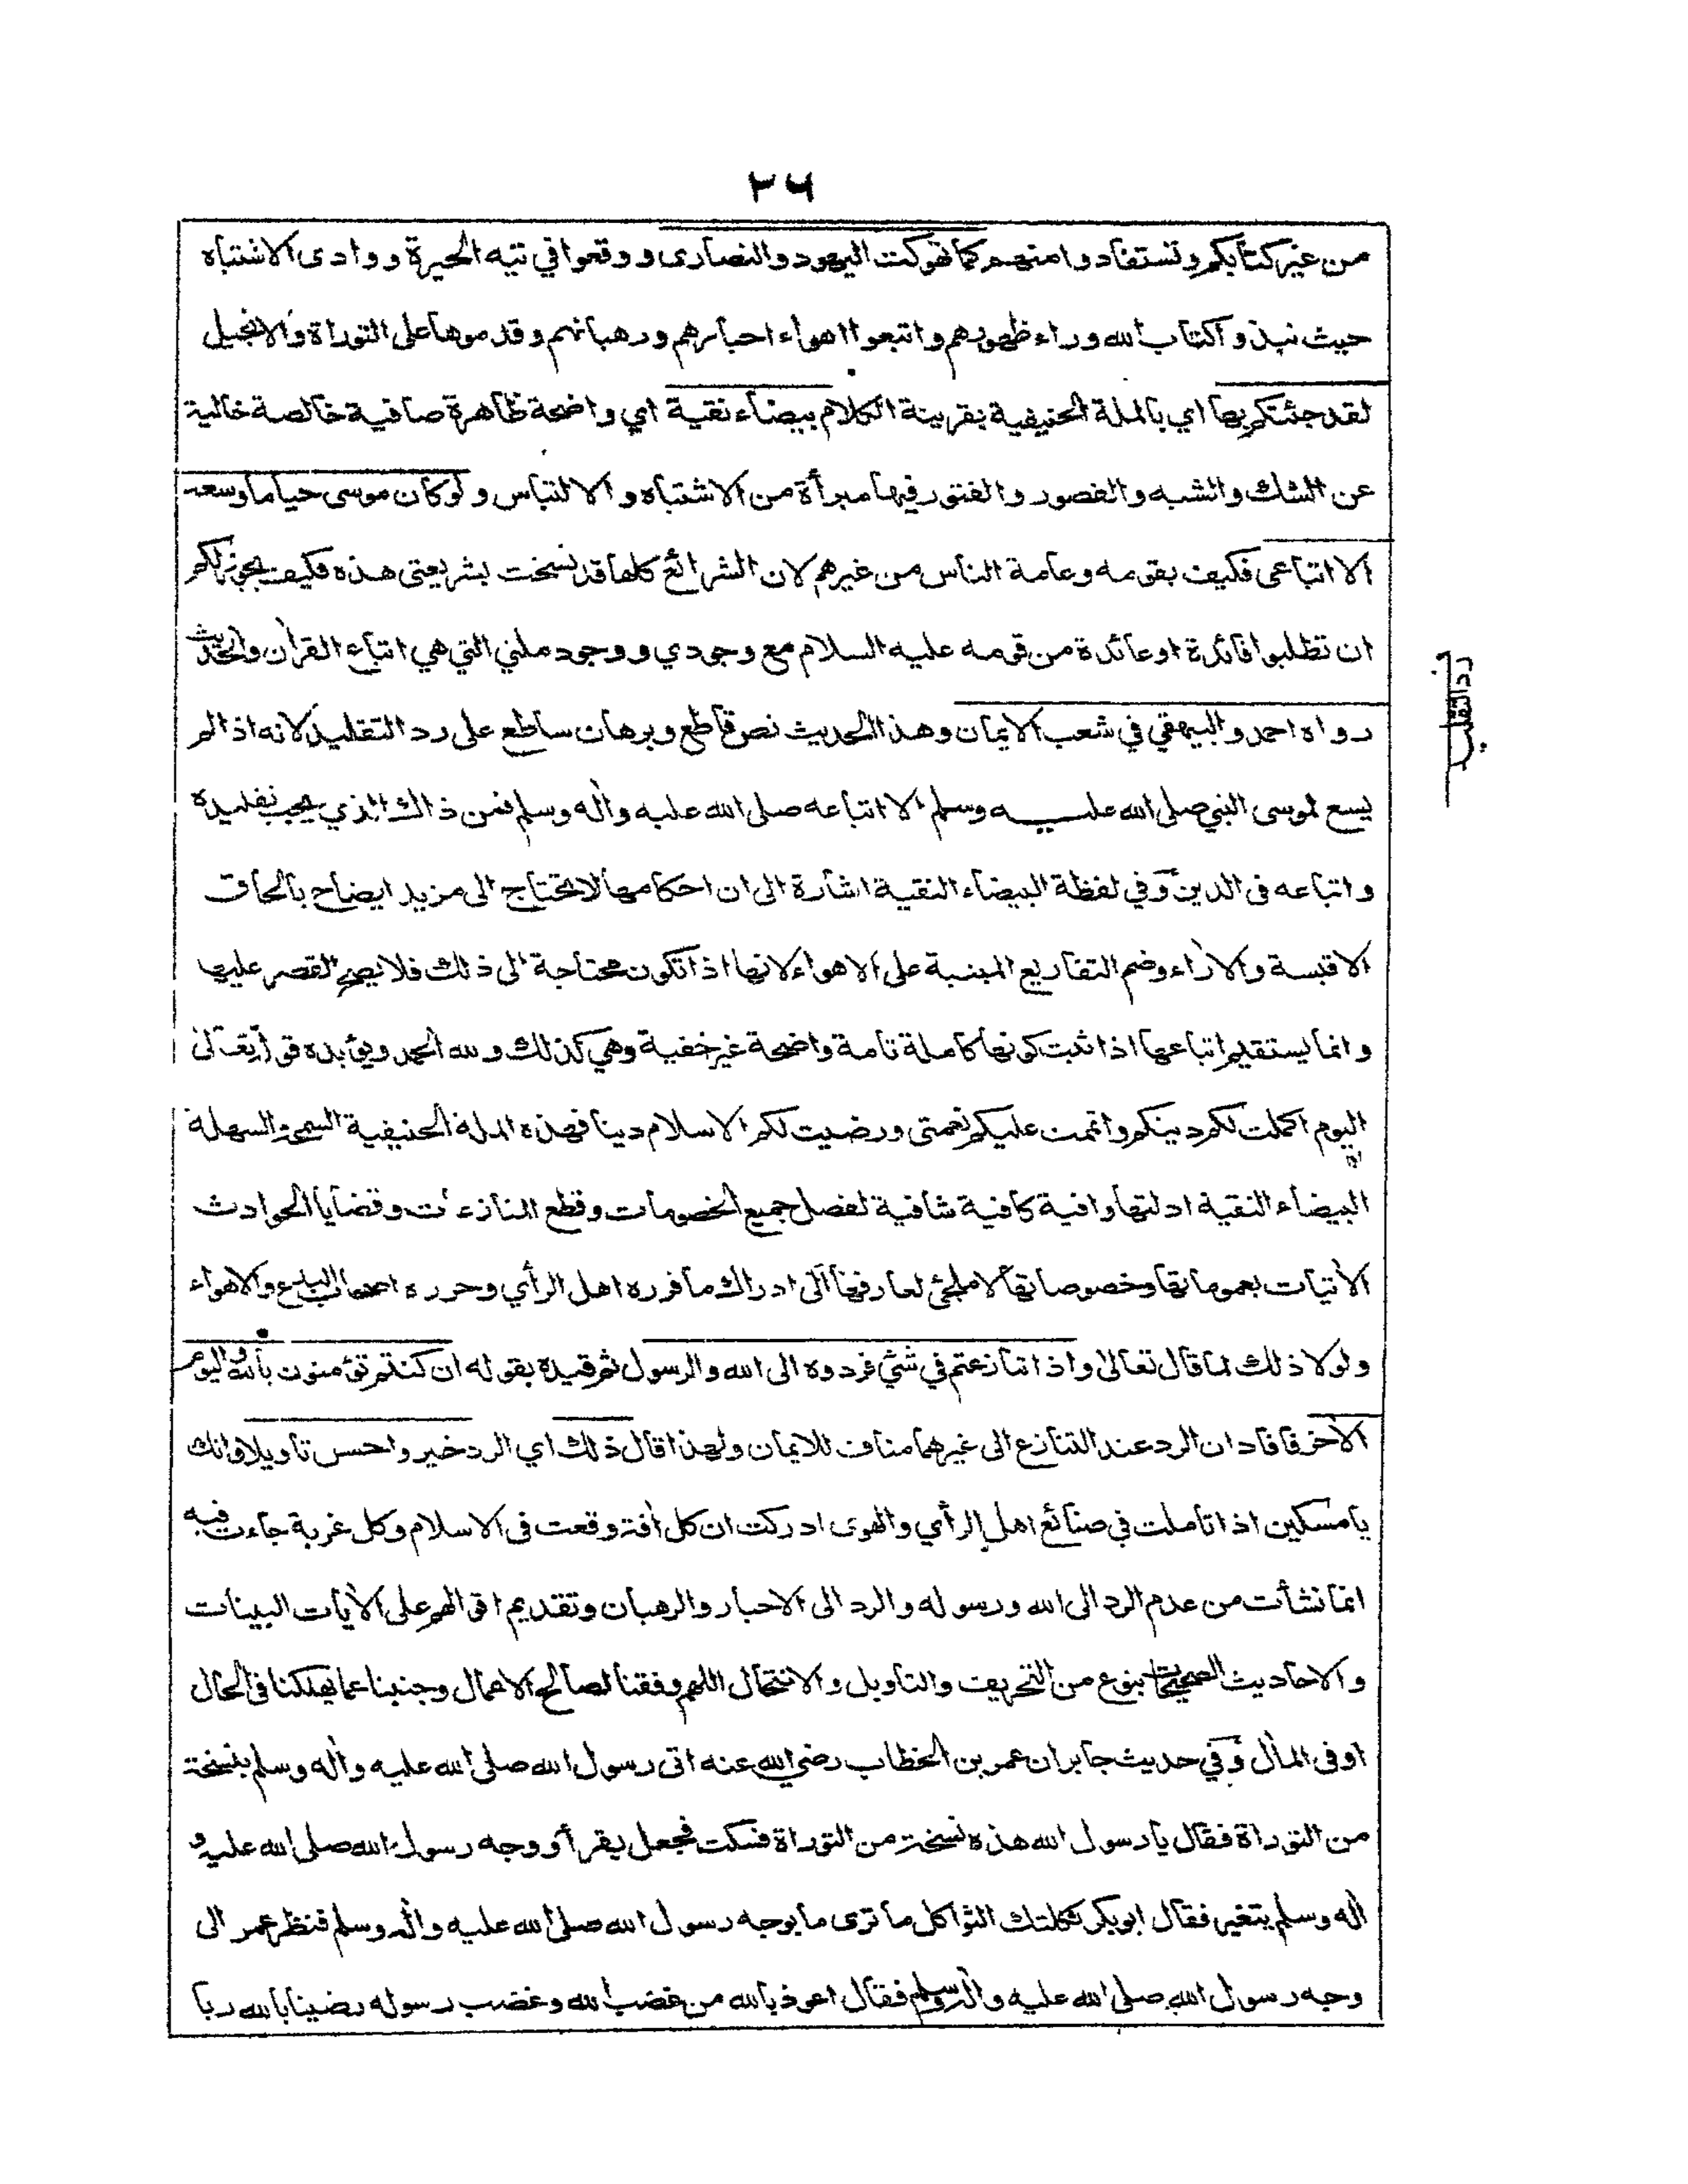 ٢٦
من غير كتابكم وتستفادوا منهم كما تهوكت اليهود والنصارى ووقعوا في تيه الحيرة ووادى الاشتباه
حيث نبذوا كتاب الله وراء ظهورهم واتبعوا اهواء احبارهم ورهبانهم وقدموها على التوراة والانجيل
لقد جئتكم بها اي بالملة الحنيفية بقرينة الكلام بيضاء نقية اي واضحة ظاهرة صافية خالصة خالية
عن الشك والشبه والقصور والفتور فيها مبرأة من الاشتباه والالتباس ولو كان موسى حيا ما وسعه
الا اتباعى فكيف بقومه وعامة الناس من غيرهم لان الشرائع كلها قد نسخت بشريعتى هذه فكيف يجوز لكم
ان تطلبوا فائدة او عائدة من قومه عليه السلام مع وجودي ووجود ملتي التي هي اتباع القرأن والحديث
رواه احمد والبيهقي في شعب الايمان وهذا الحديث نص قاطع وبرهان ساطع على رد التقليد لانه اذا لم
رد التقليد
يسع لموسى النبي صلى الله عليه وسلم الا اتباعه صلى الله عليه وأله وسلم فمن ذاك الذي يجب تقليده
واتباعه فى الدين وفي لفظة البيضاء النقية اشارة الى ان احكامها لا تحتاج الى مزيد ايضاح بالحاق
الاقيسة والأراء وضم التفاريع المبنية على الاهواء لانها اذا تكون محتاجة الى ذلك فلا يصح القصر عليها
وانما يستقيم اتباعها اذا ثبت كونها كاملة تامة واضحة غير خفية وهي كذلك ولله الحمد ويؤيده قوله تعالى
اليوم اكملت لكم دينكم واتممت عليكم نعمتى ورضيت لكم الاسلام دينا فهذه الملة الحنيفية السمحة السهلة
البيضاء النقية ادلتها وافية كافية شافية لفصل جميع الخصومات وقطع المنازعات وقضايا الحوادث
الأتيات بعموماتها وخصوصاتها لا ملجئ لعارفها الى ادراك ما قرره اهل الرأي وحرره اصحاب البدع والاهواء
ولولا ذلك لما قال تعالى واذا تنازعتم في شئ فردوه الى الله والرسول ثم قيده بقوله ان كنتم تؤمنون بالله واليوم
الأخر فافاد ان الرد عند التنازع الى غيرهما مناف للايمان ولهذا قال ذلك اي الرد خير واحسن تاويلا وانك
يا مسكين اذا تاملت في صنائع اهل الرأي والهوى ادركت ان كل أفة وقعت فى الاسلام وكل غربة جاءت فيه
انما نشأت من عدم الرد الى الله ورسوله والرد الى الاحبار والرهبان وتقديم اقوالهم على الأيات البينات
والاحاديث الصحيحات بنوع من التحريف والتاويل والانتحال اللهم وفقنا لصالح الاعمال وجنبنا عما يهلكنا فى الحال
او فى المأل وفي حديث جابر ان عمر بن الخطاب رضي الله عنه اتى رسول الله صلى الله عليه وأله وسلم بنسخة
من التوراة فقال يا رسول الله هذه نسخة من التوراة فسكت فجعل يقرأ ووجه رسول الله صلى الله عليه و
أله وسلم يتغير فقال ابو بكر ثكلتك الثواكل ما ترى ما بوجه رسول الله صلى الله عليه وأله وسلم فنظر عمر الى
وجه رسول الله صلى الله عليه وأله وسلم فقال اعوذ بالله من غضب الله وغضب رسوله رضينا بالله ربا